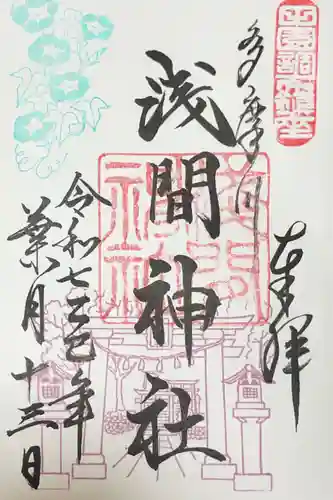 田園調布鎮座
多摩川
奉拝
浅間神社
浅間神社
令和七乙巳年
葉月十三日